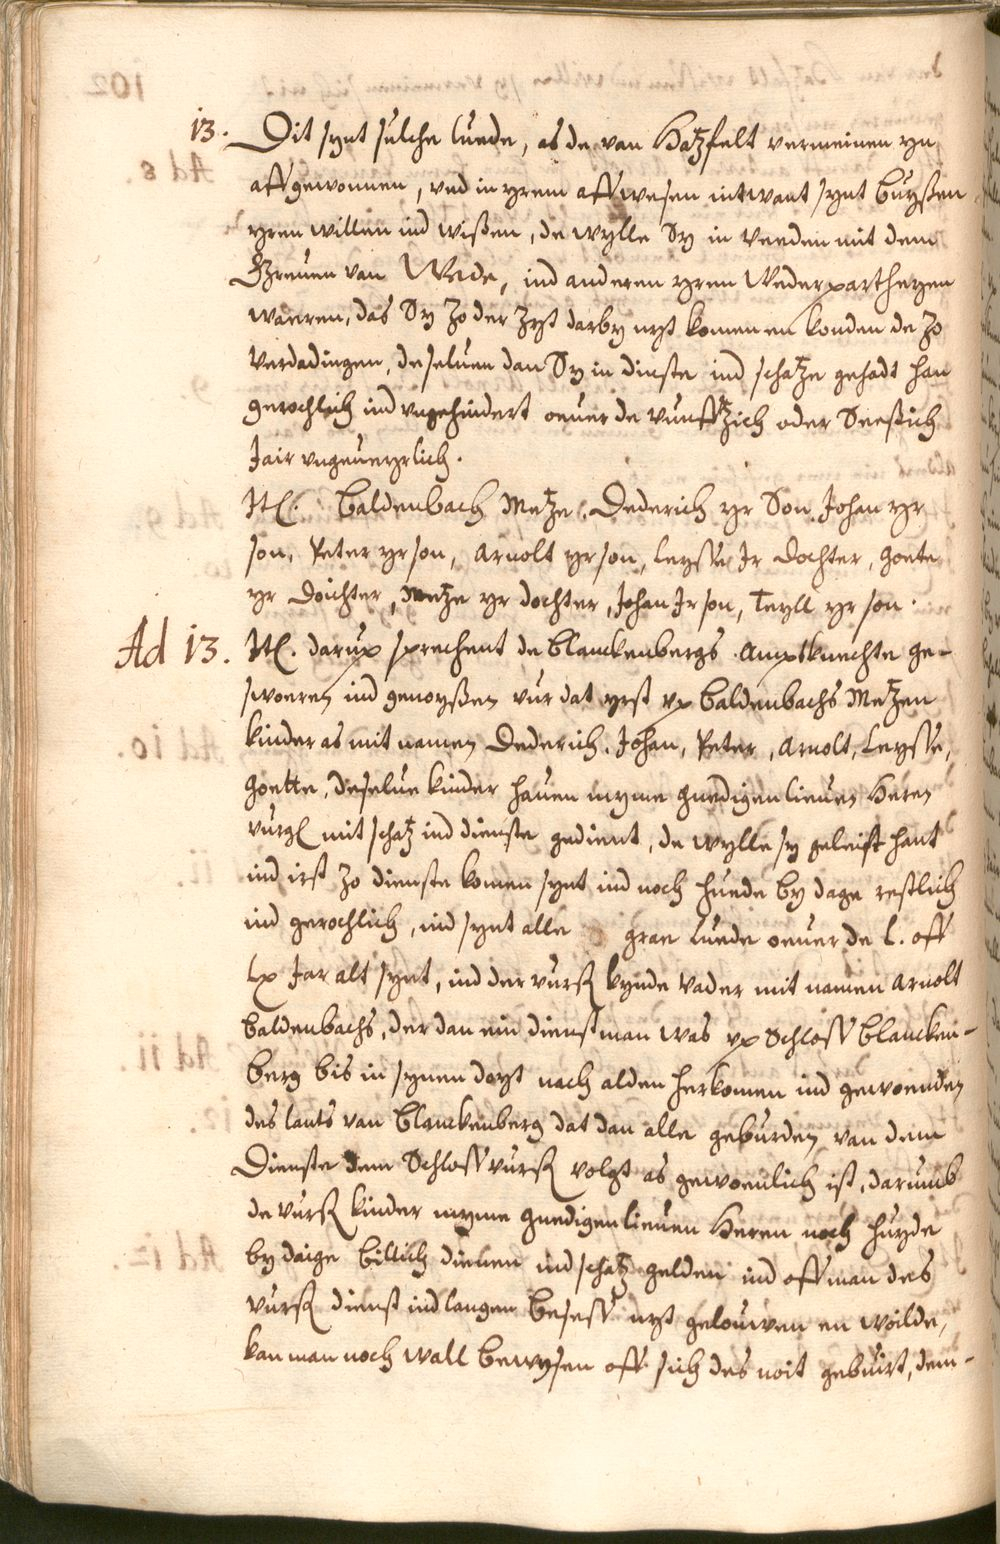 13. Dit synt sulche luede, as de van Hatzfelt vermeinen yn
affgewonnen, und in yrem affwesen intwant synt buyßen
yren willen ind wißen, de wylle Sy in Veeden mit dem
Greuen van Wede, ind anderen yren Wederpartheyen
waeren, das Sy zo der zyt darby nyt komen en konden de zo
verdadingen, deseluen dan Sy in dinste ind schatze gehadt han
gerochlich ind ungehindert oeuer de vunfftzich oder Seeßich
Jair ungeueyrlich.
Itl. Baldenbach Metze. Dederich yr Son, Johan yr
son, Peter yr son, Arnolt yr son, Leysse Ir dochter, Goete
yr doichter, Metze yr dochter, Johan Ir son, Teyll yr son.
Ad 13. Itl. darup sprechent de Blanckenbergs Amptknechte ge-
swoeren ind genoyßen vur dat yrst up Baldenbachs Metzen
kinder as mit namen Dederich, Johan, Peter, Arnolt, Leysse,
Goette, deselue kinder hauen myme gnedigen lieuen Heren
vurgl mit schatz ind dienste gedient, de wylle sy geleist hant
ind irst zo dienste komen synt ind noch huede by dage restlich
ind gerochlich, ind synt alle grae Luede oeuer de L. off
Lx Jar alt synt, ind der vurß kynde Vader mit namen Arnolt
Baldenbachs, der dan ein dienstman was up Schloss Blancken-
berg bis in synen doyt nach alden herkomen ind gewoenden
des lants van Blanckenberg dat dan alle geburden van dem
Dienste dem Schloss vurß volgt as gewoenlich ist, darumb
de vurß kinder myme gnedigen lieuen Heren noch huyde
by daige billich dienen ind schatz gelden ind off man des
vurß dienst ind langen beseß nyt gelouwen en woilde,
kan man noch wall bewysen off sich des noit gebuirt, dem-